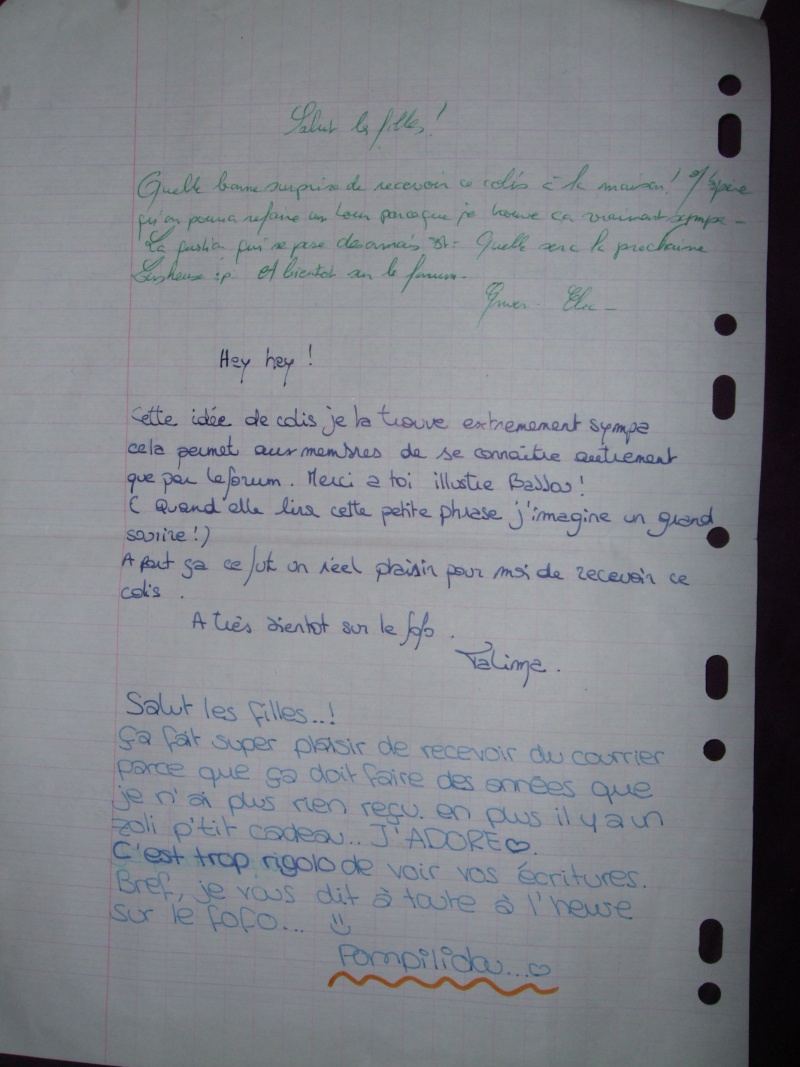 Salut les filles!
Quelle bonne surprise de recevoir ce colis à la maison! J'espère
qu'on pourra refaire un tour parceque je trouve ça vraiment sympa -
La question qui se pose desormais est - Quelle sera la prochaine
:p A bientot sur le forum.
Hey hey !
Cette idée de colis je la trouve extremement sympa
cela permet aux membres de se connaître autrement
que par le forum. Merci a toi illustre !
( Quand elle lira cette petite phrase j'imagine un grand
sourire !)
A part ça ce fut un réel plaisir pour moi de recevoir ce
colis .
A très bientot sur le fofo .
Talima .
Salut les filles..!
ça fait super plaisir de recevoir du courrier
parce que ça doit faire des années que
je n'ai plus rien reçu. en plus il y a un
zoli p'tit cadeau.. J'ADORE♡.
C'est trop rigolo de voir vos écritures.
Bref, je vous dit à toute à l'heure
sur le fofo... :)
Pompilidou...♡